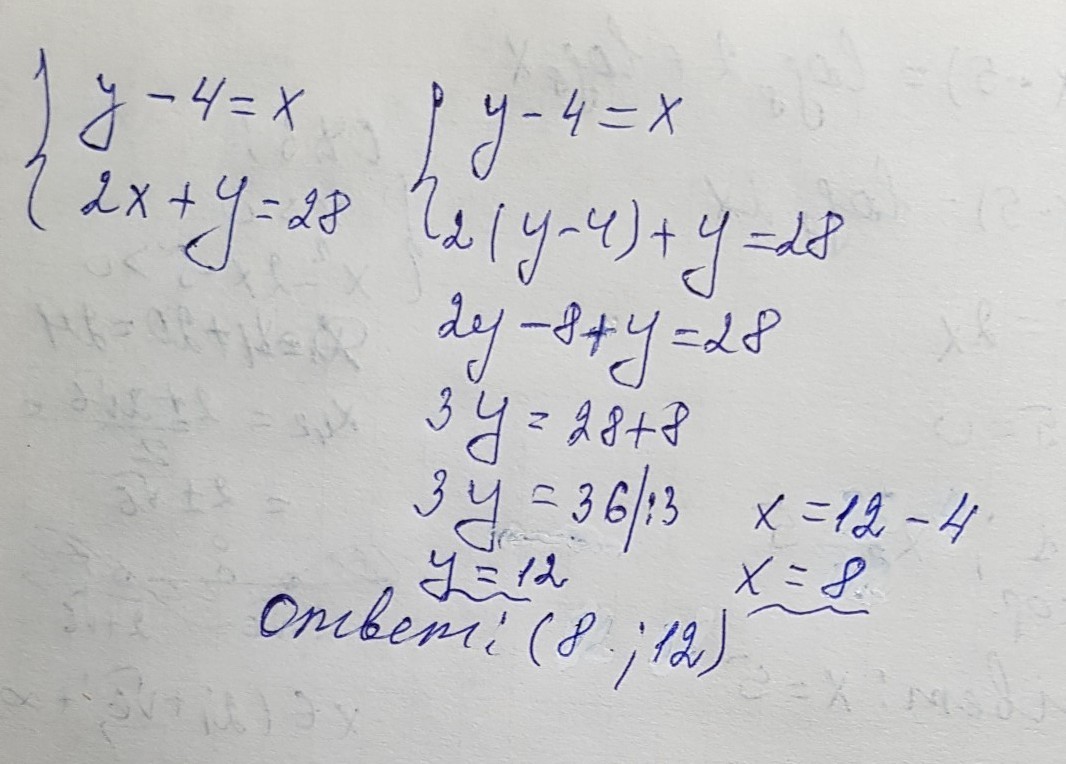 y - 4 = x
2x + y = 28
y - 4 = x
2(y-4) + y = 28
2y - 8 + y = 28
3y = 28+8
3y = 36/:3
y = 12
x = 12 - 4
x = 8
Ответ: (8 ; 12)